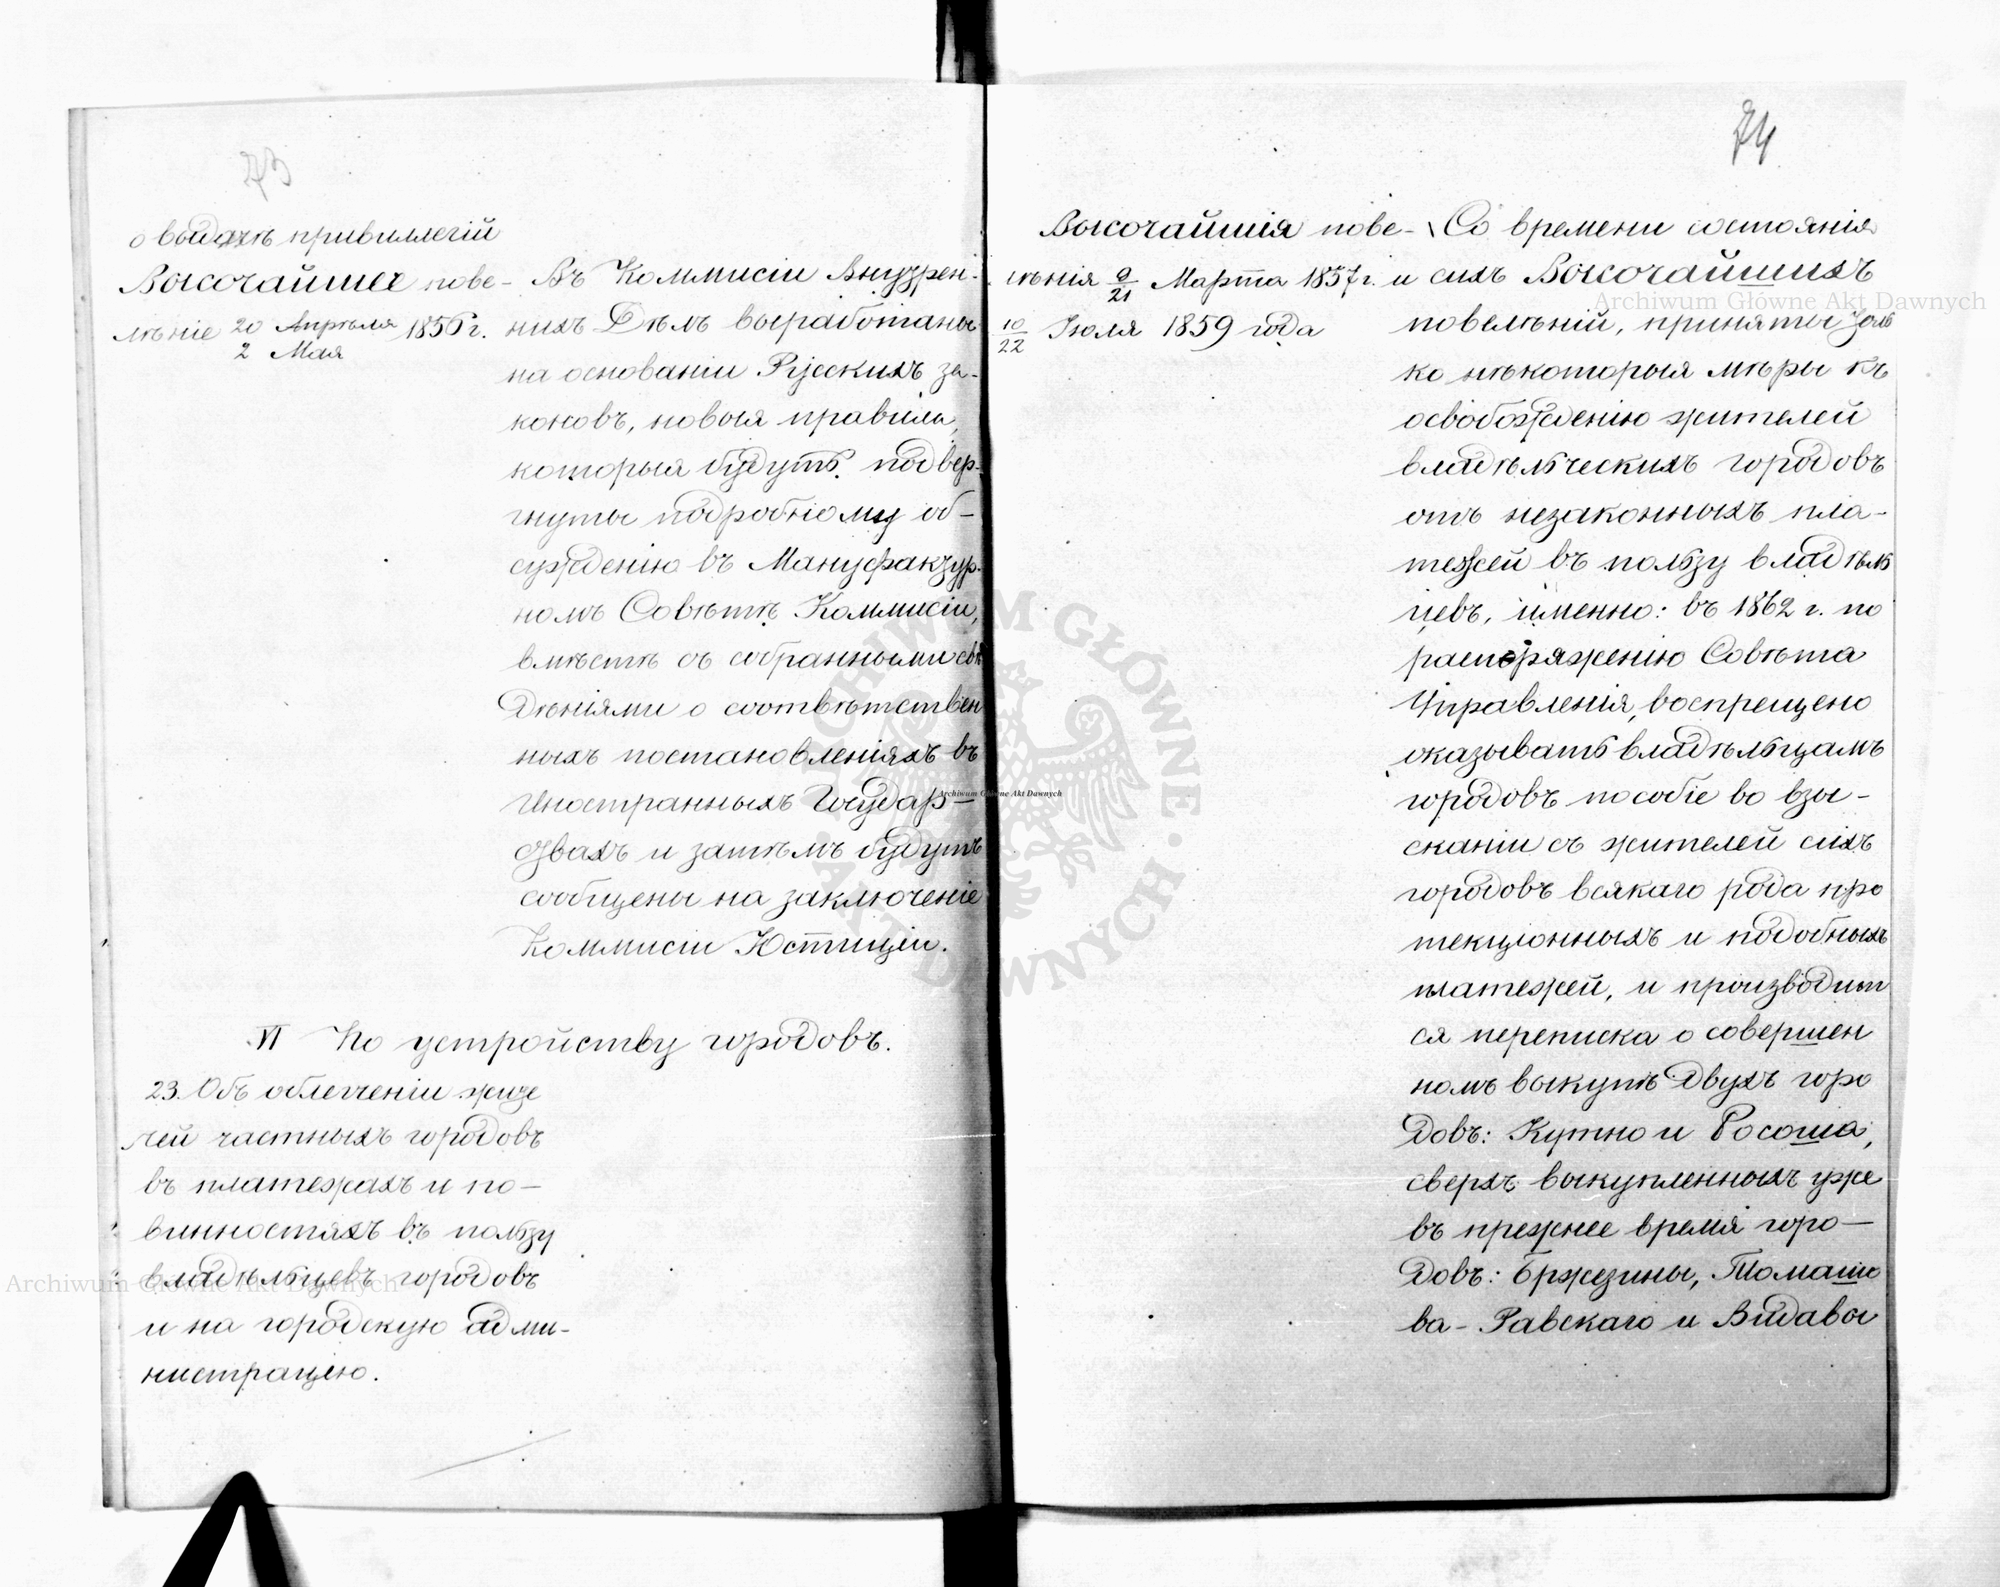 73
о выдачѣ привиллегій
Высочайшее пове-
лѣніе 20 Апрѣля 1856 г.
2 Мая
Въ Коммисіи Внутрен-
нихъ Дѣлъ выработаны
на основаніи Русскихъ за-
коновъ, новыя правила,
которыя будутъ подвер-
гнуты подробному об-
сужденію въ Мануфактур-
номъ Совѣтѣ Коммисіи,
вмѣстѣ съ собранными свѣ
дѣніями о соотвѣтствен
ныхъ постановленіяхъ въ
Иностранныхъ Государ-
ствахъ и затѣмъ будутъ
сообщены на заключеніе
Коммисіи Юстиціи.
VI По устройству городовъ.
23. Объ облегченіи жите
лей частныхъ городовъ
въ платежахъ и по-
винностяхъ въ пользу
владѣльцевъ городовъ
и на городскую адми-
нистрацію.
74
Высочайшія пове-
лѣнія 9/21 Марта 1857 г. и
10/22 Іюля 1859 года
Со времени состоянія
сихъ Высочайшихъ
повелѣній, приняты толь
ко нѣкоторыя мѣры къ
освобожденію жителей
владѣльческихъ городовъ
отъ незаконныхъ пла-
тежей въ пользу владѣль
цевъ, именно: въ 1862 г. по
распоряженію Совѣта
Управленія, воспрещено
оказывать владѣльцамъ
городовъ пособіе во взы-
сканіи съ жителей сихъ
городовъ всякаго рода про
текціонныхъ и подобныхъ
платежей, и производит
ся переписка о совершен
номъ выкупѣ двухъ горо
довъ: Кутно и Росоша,
сверхъ выкупленныхъ уже
въ прежнее время горо-
довъ: Бржезины, Томашо
ва-Равскаго и Видавы
Archiwum Główne Akt Dawnych
Archiwum Główne Akt Dawnych
Archiwum Główne Akt Dawnych
ARCHIWUM GŁÓWNE AKT DAWNYCH